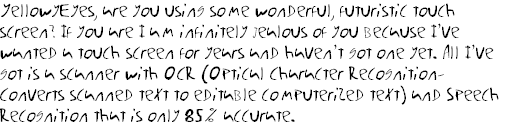 YellowyEyes, are you using some wonderful, futuristic touch
screen? If you are I am infinitely jealous of you because I've
wanted a touch screen for years and haven't got one yet. All I've
got is a scanner with OCR (Optical Character Recognition-
converts scanned text to editable computerized text) and Speech
Recognition that is only 85% accurate.